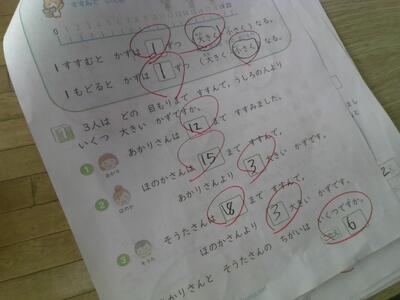 0 1 2 3 4 5 6 7
1 すすむと かずは 1 ずつ (大きく 小さく) なる。
1 もどると かずは 1 ずつ (大きく 小さく) なる。
1 3人は どの 目もりまで すすんで、うしろの人より
いくつ 大きい かずですか。
1 あかり あかりさんは 12 まで すすみました。
2 ほのか ほのかさんは 15 まで すすんで、
あかりさんより 3 大きい かずです。
3 そうた そうたさんは 18 まで すすんで、
ほのかさんより 3 大きい かずです。
あかりさんと そうたさんの ちがいは いくつですか。
6